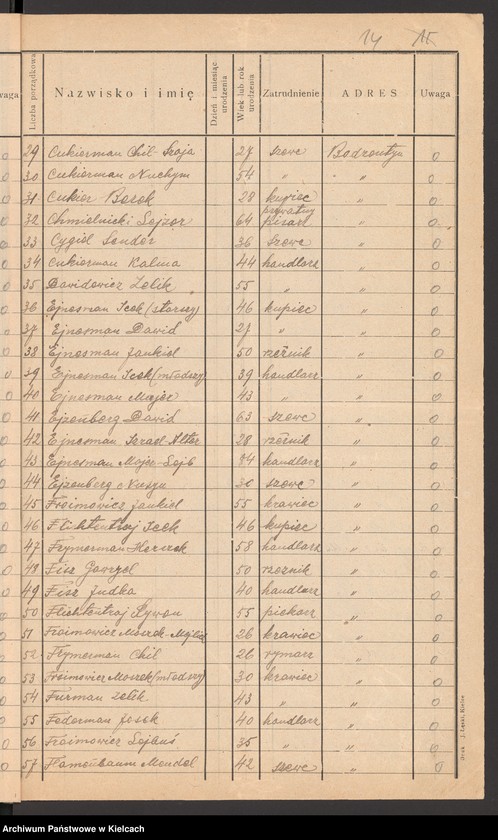 14 15
waga Liczba porządkowa Nazwisko i imię Dzień i miesiąc urodzenia Wiek lub rok urodzenia Zatrudnienie ADRES Uwaga
0 29 Cukierman Chil-Szaja 27 szewc Bodzentyn 0
0 30 Cukierman Nuchym 54 " " 0
0 31 Cukier Berek 28 kupiec " 0
0 32 Chmielnicki Lejzor 64 prywatny pisarz " 0
0 33 Cygiel Sender 36 szewc " 0
0 34 Cukierman Kalma 44 handlarz " 0
0 35 Dawidowicz Lelik 55 " " 0
0 36 Ejnesman Icek (starszy) 46 kupiec " 0
0 37 Ejnesman Dawid 27 " " 0
0 38 Ejnesman Jankiel 50 rzeźnik " 0
0 39 Ejnesman Icek (młodszy) 39 handlarz " 0
0 40 Ejnesman Majer 43 " " 0
0 41 Ejzenberg Dawid 63 szewc " 0
0 42 Ejnesman Izrael-Alter 28 rzeźnik " 0
0 43 Ejnesman Mojsze-Lejb 84 handlarz " 0
0 44 Ejzenberg 30 szewc " 0
0 45 Froimowicz Jankiel 55 krawiec " 0
0 46 Flichtentraj Icek 46 kupiec " 0
0 47 Frymerman Herszek 58 handlarz " 0
0 48 Fisz 50 rzeźnik " 0
0 49 Fisz Judka 40 handlarz " 0
0 50 Flichtentraj Szymon 55 piekarz " 0
0 51 Froimowicz Moszek-Majlech 26 krawiec " 0
0 52 Frymerman Chil 26 rymarz " 0
0 53 Froimowicz Moszek (młodszy) 30 krawiec " 0
0 54 Furman Lelik 43 " " 0
0 55 Federman Josek 40 handlarz " 0
0 56 Froimowicz Lejbuś 35 " " 0
0 57 Flamenbaum Mendel 42 szewc " 0
Druk. J. Łęski, Kielce
Archiwum Państwowe w Kielcach